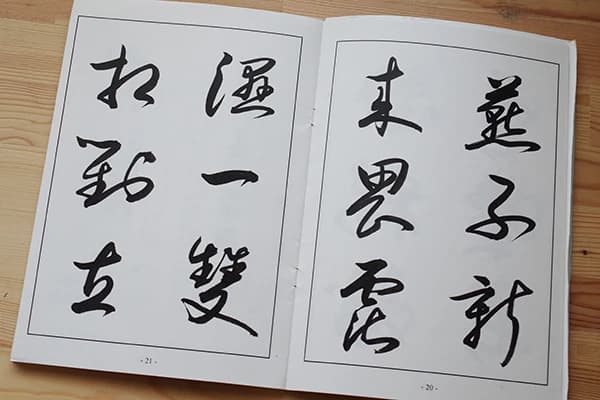 燕子新
来畏霑
- 20 -
濕一雙
相對立
- 21 -